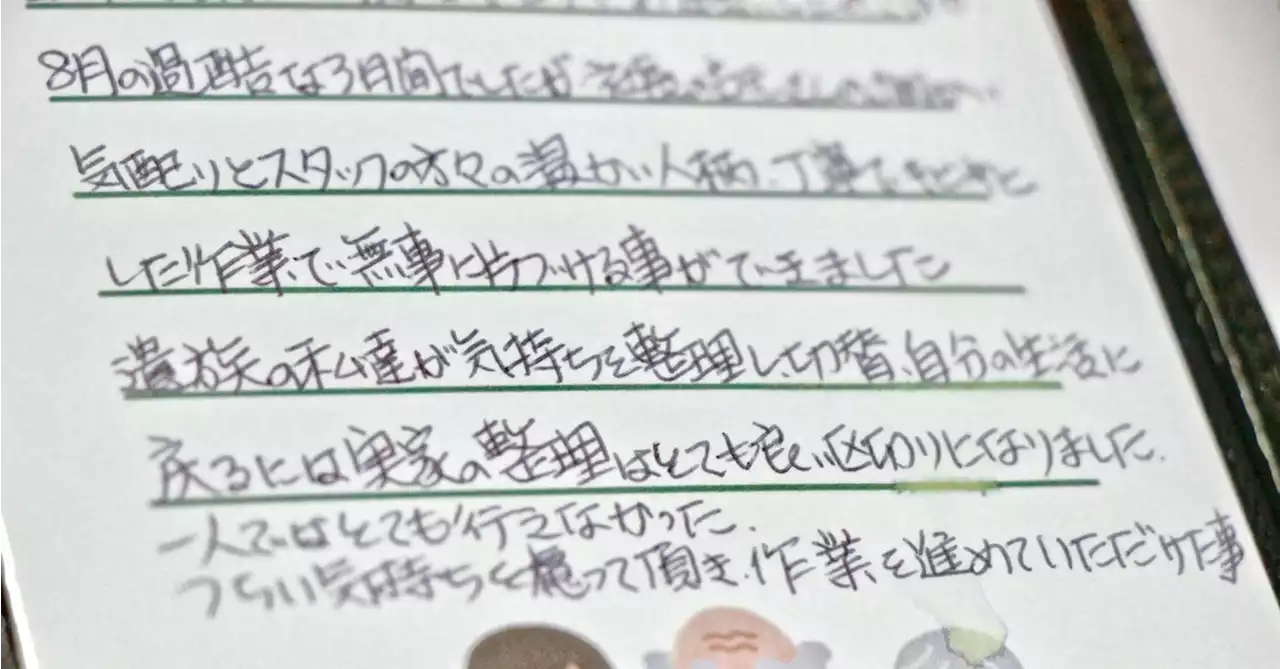 8月の過酷な3日間でしたが
気配りとスタッフの方々の温かい人柄、丁寧で
した作業で無事に片づける事ができました
遺族の私達が気持ちを整理し、切替、自分の生活に
戻るには実家の整理はとても良い区切りになりました.
一人ではとても行えなかった.
つらい気持ちを って頂き、作業を進めていただけた事